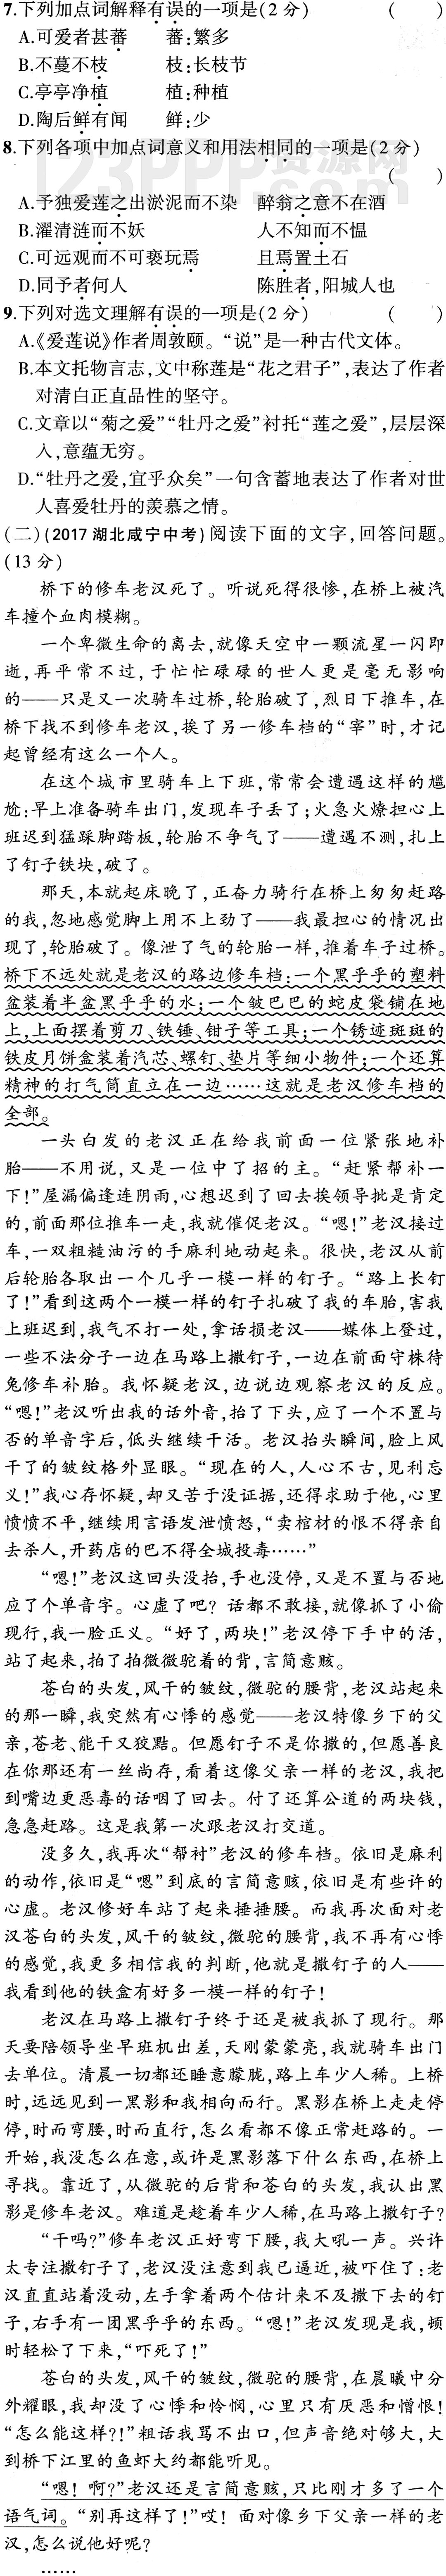 7.下列加点词解释有误的一项是(2分) (  )
A.可爱者甚蕃 蕃:繁多
B.不蔓不枝 枝:长枝节
C.亭亭净植 植:种植
D.陶后鲜有闻 鲜:少
8.下列各项中加点词意义和用法相同的一项是(2分)
(  )
A.予独爱莲之出淤泥而不染 醉翁之意不在酒
B.濯清涟而不妖 人不知而不愠
C.可远观而不可亵玩焉 且焉置土石
D.同予者何人 陈胜者,阳城人也
9.下列对选文理解有误的一项是(2分) (  )
A.《爱莲说》作者周敦颐。“说”是一种古代文体。
B.本文托物言志,文中称莲是“花之君子”,表达了作者
对清白正直品性的坚守。
C.文章以“菊之爱”“牡丹之爱”衬托“莲之爱”,层层深
入,意蕴无穷。
D.“牡丹之爱,宜乎众矣”一句含蓄地表达了作者对世
人喜爱牡丹的羡慕之情。
(二)(2017湖北咸宁中考)阅读下面的文字,回答问题。
(13分)
桥下的修车老汉死了。听说死得很惨,在桥上被汽
车撞个血肉模糊。
一个卑微生命的离去,就像天空中一颗流星一闪即
逝,再平常不过,于忙忙碌碌的世人更是毫无影响
的——只是又一次骑车过桥,轮胎破了,烈日下推车,在
桥下找不到修车老汉,挨了另一修车档的“宰”时,才记
起曾经有这么一个人。
在这个城市里骑车上下班,常常会遭遇这样的尴
尬:早上准备骑车出门,发现车子丢了;火急火燎担心上
班迟到猛踩脚踏板,轮胎不争气了——遭遇不测,扎上
了钉子铁块,破了。
那天,本就起床晚了,正奋力骑行在桥上匆匆赶路
的我,忽地感觉脚上用不上劲了——我最担心的情况出
现了,轮胎破了。像泄了气的轮胎一样,推着车子过桥。
桥下不远处就是老汉的路边修车档:一个黑乎乎的塑料
盆装着半盆黑乎乎的水;一个皱巴巴的蛇皮袋铺在地
上,上面摆着剪刀、铁锤、钳子等工具;一个锈迹斑斑的
铁皮月饼盒装着汽芯、螺钉、垫片等细小物件;一个还算
精神的打气筒直立在一边……这就是老汉修车档的
全部。
一头白发的老汉正在给我前面一位紧张地补
胎——不用说,又是一位中了招的主。“赶紧帮补一
下!”屋漏偏逢连阴雨,心想迟到了回去挨领导批是肯定
的,前面那位推车一走,我就催促老汉。“嗯!”老汉接过
车,一双粗糙油污的手麻利地动起来。很快,老汉从前
后轮胎各取出一个几乎一模一样的钉子。“路上长钉
了!”看到这两个一模一样的钉子扎破了我的车胎,害我
上班迟到,我气不打一处,拿话损老汉——媒体上登过,
一些不法分子一边在马路上撒钉子,一边在前面守株待
兔修车补胎。我怀疑老汉,边说边观察老汉的反应。
“嗯!”老汉听出我的话外音,抬了下头,应了一个不置与
否的单音字后,低头继续干活。老汉抬头瞬间,脸上风
干了的皱纹格外显眼。“现在的人,人心不古,见利忘
义!”我心存怀疑,却又苦于没证据,还得求助于他,心里
愤愤不平,继续用言语发泄愤怒,“卖棺材的恨不得亲自
去杀人,开药店的巴不得全城投毒……”
“嗯!”老汉这回头没抬,手也没停,又是不置与否地
应了个单音字。心虚了吧?话都不敢接,就像抓了小偷
现行,我一脸正义。“好了,两块!”老汉停下手中的活,
站了起来,拍了拍微微驼着的背,言简意赅。
苍白的头发,风干的皱纹,微驼的腰背,老汉站起来
的那一瞬,我突然有心悸的感觉——老汉特像乡下的父
亲,苍老、能干又狡黠。但愿钉子不是你撒的,但愿善良
在你那还有一丝尚存,看着这像父亲一样的老汉,我把
到嘴边更恶毒的话咽了回去。付了还算公道的两块钱,
急急赶路。这是我第一次跟老汉打交道。
没多久,我再次“帮衬”老汉的修车档。依旧是麻利
的动作,依旧是“嗯”到底的言简意赅,依旧是有些许的
心虚。老汉修好车站了起来捶捶腰。而我再次面对老
汉苍白的头发,风干的皱纹,微驼的腰背,我不再有心悸
的感觉,我更多相信我的判断,他就是撒钉子的人——
我看到他的铁盒有好多一模一样的钉子!
老汉在马路上撒钉子终于还是被我抓了现行。那
天要陪领导坐早班机出差,天刚蒙蒙亮,我就骑车出门
去单位。清晨一切都还睡意朦胧,路上车少人稀。上桥
时,远远见到一黑影和我相向而行。黑影在桥上走走停
停,时而弯腰,时而直行,怎么看都不像正常赶路的。一
开始,我没怎么在意,或许是黑影落下什么东西,在桥上
寻找。靠近了,从微驼的后背和苍白的头发,我认出黑
影是修车老汉。难道是趁着车少人稀,在马路上撒钉子?
“干吗?”修车老汉正好弯下腰,我大吼一声。兴许
太专注撒钉子了,老汉没注意到我已逼近,被吓住了:老
汉直直站着没动,左手拿着两个估计来不及撒下去的钉
子,右手有一团黑乎乎的东西。“嗯!”老汉发现是我,顿
时轻松了下来,“吓死了!”
苍白的头发,风干的皱纹,微驼的腰背,在晨曦中分
外耀眼,我却没了心悸和怜悯,心里只有厌恶和憎恨!
“怎么能这样?!”粗话我骂不出口,但声音绝对够大,大
到桥下江里的鱼虾大约都能听见。
“嗯!啊?”老汉还是言简意赅,只比刚才多了一个
语气词。“别再这样了!”哎!面对像乡下父亲一样的老
汉,怎么说他好呢?
……